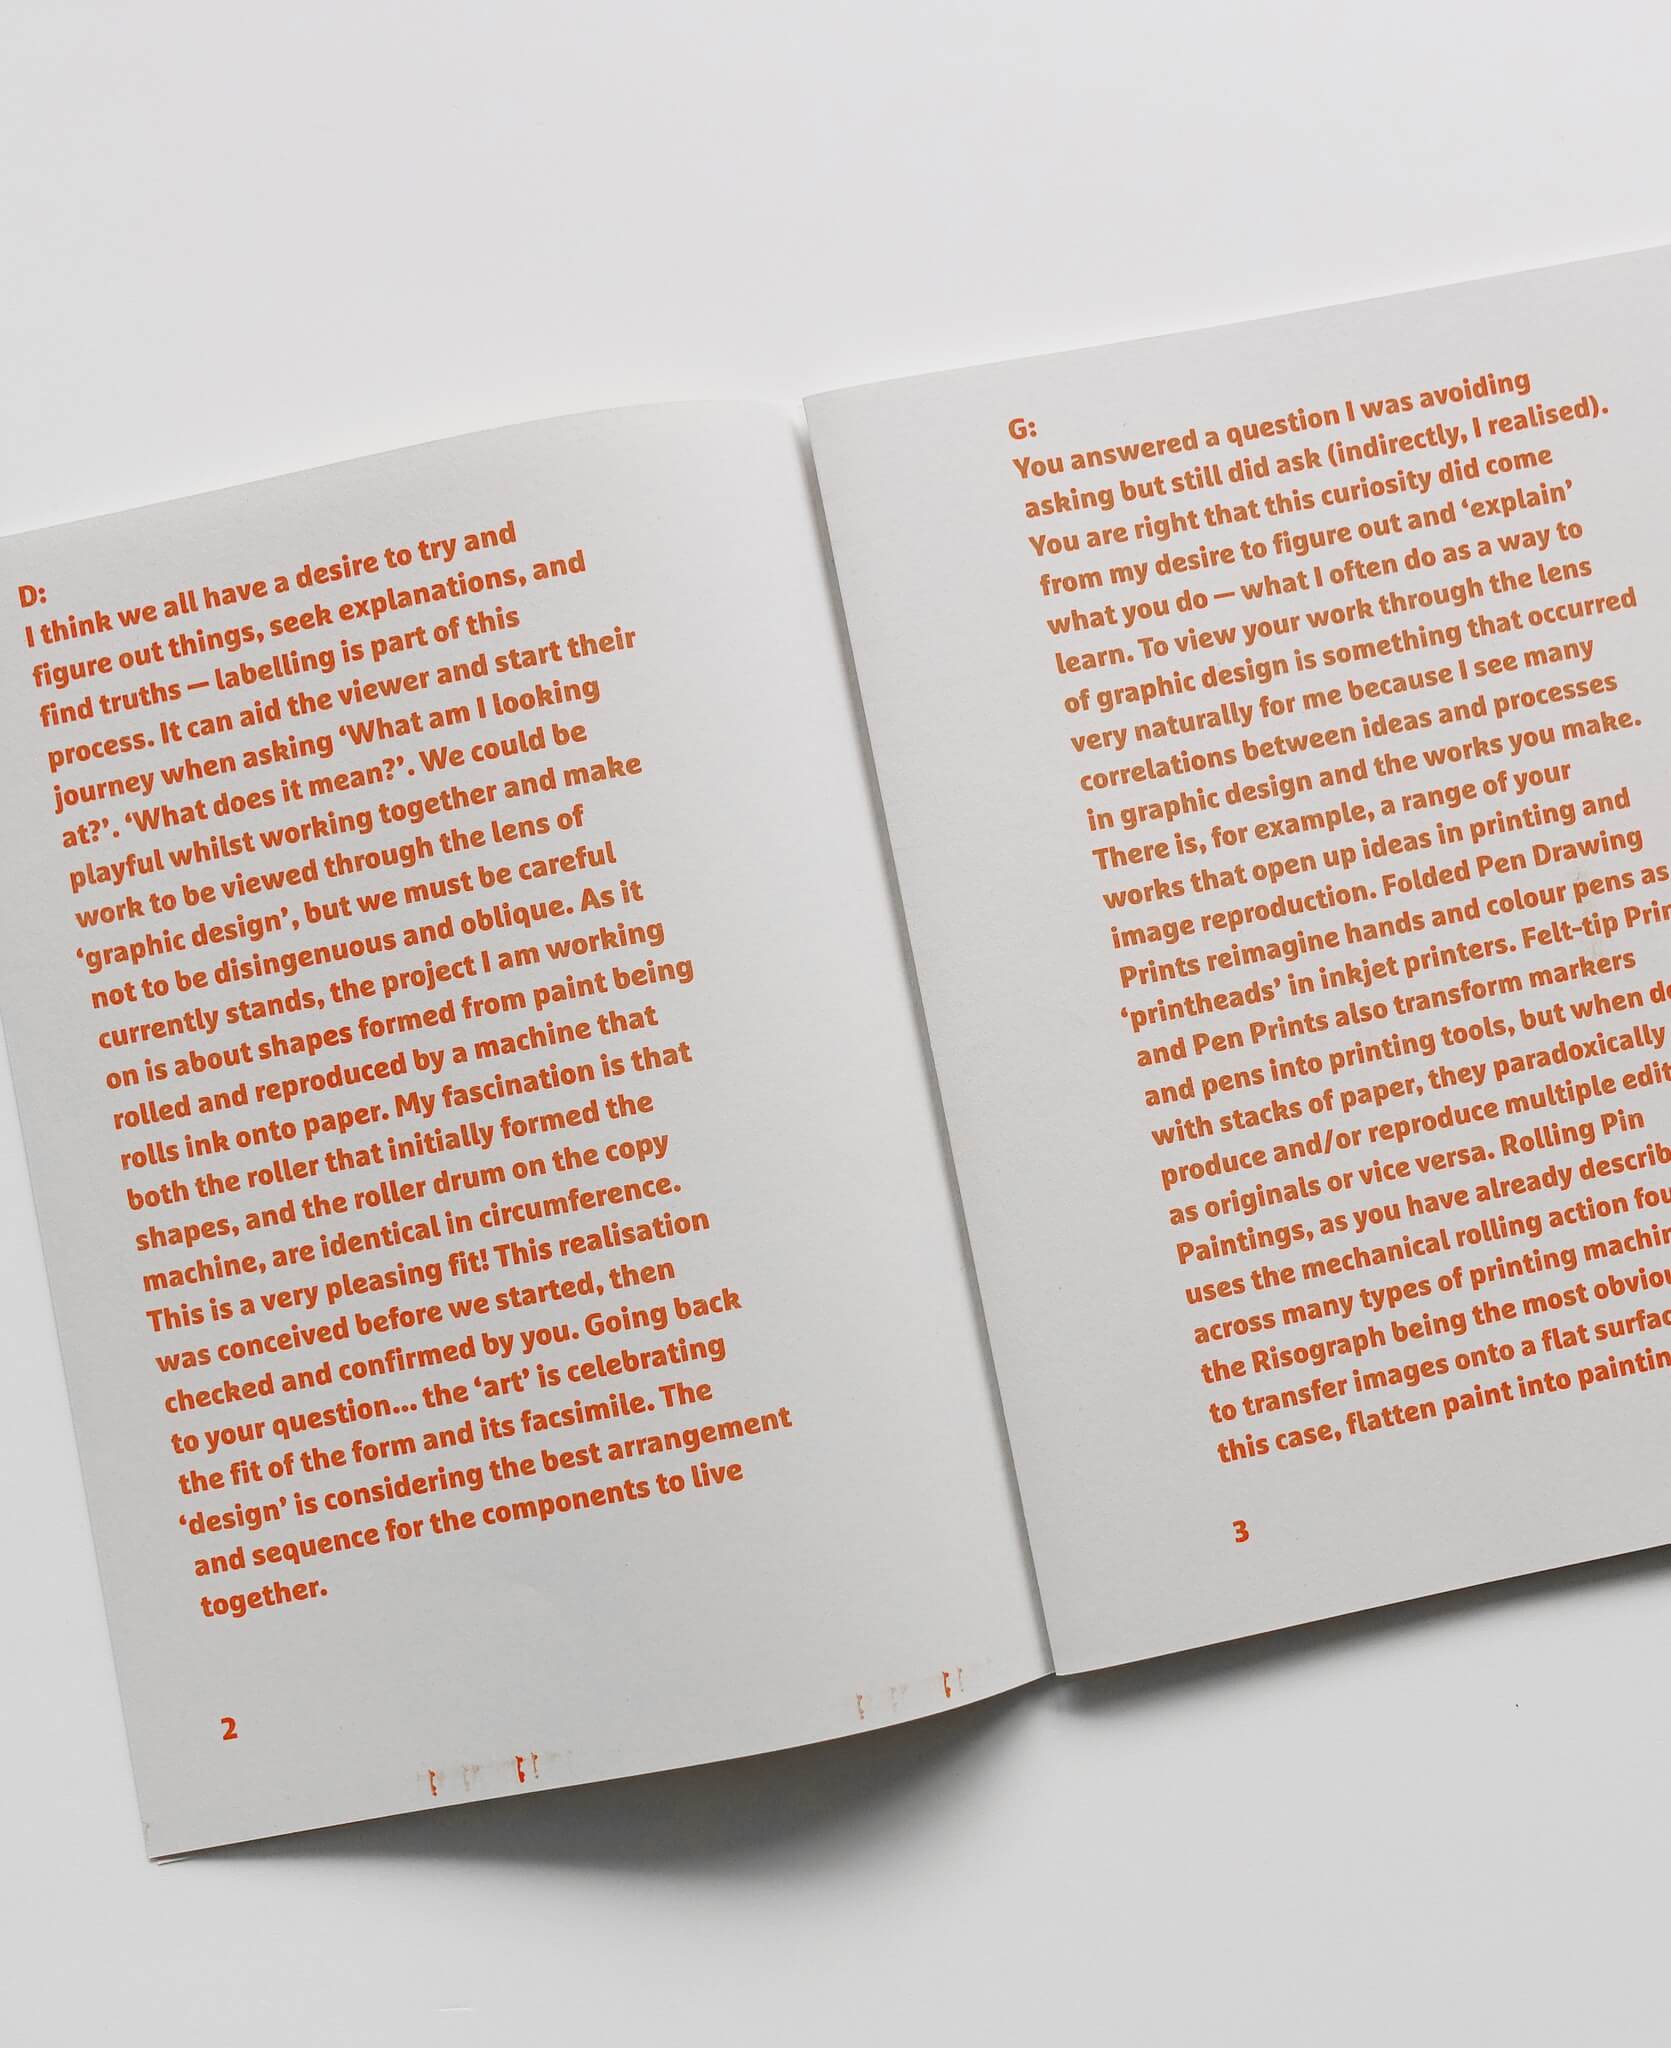 D:
I think we all have a desire to try and
figure out things, seek explanations, and
find truths — labelling is part of this
process. It can aid the viewer and start their
journey when asking ‘What am I looking
at?’. ‘What does it mean?’. We could be
playful whilst working together and make
work to be viewed through the lens of
‘graphic design’, but we must be careful
not to be disingenuous and oblique. As it
currently stands, the project I am working
on is about shapes formed from paint being
rolled and reproduced by a machine that
rolls ink onto paper. My fascination is that
both the roller that initially formed the
shapes, and the roller drum on the copy
machine, are identical in circumference.
This is a very pleasing fit! This realisation
was conceived before we started, then
checked and confirmed by you. Going back
to your question... the ‘art’ is celebrating
the fit of the form and its facsimile. The
‘design’ is considering the best arrangement
and sequence for the components to live
together.
2
G:
You answered a question I was avoiding
asking but still did ask (indirectly, I realised).
You are right that this curiosity did come
from my desire to figure out and ‘explain’
what you do — what I often do as a way to
learn. To view your work through the lens
of graphic design is something that occurred
very naturally for me because I see many
correlations between ideas and processes
in graphic design and the works you make.
There is, for example, a range of your
works that open up ideas in printing and
image reproduction. Folded Pen Drawing
Prints reimagine hands and colour pens as
‘printheads’ in inkjet printers. Felt-tip
and Pen Prints also transform markers
and pens into printing tools, but when
with stacks of paper, they paradoxically
produce and/or reproduce multiple
as originals or vice versa. Rolling Pin
Paintings, as you have already
uses the mechanical rolling action
across many types of printing
the Risograph being the most
to transfer images onto a flat
this case, flatten paint into
3